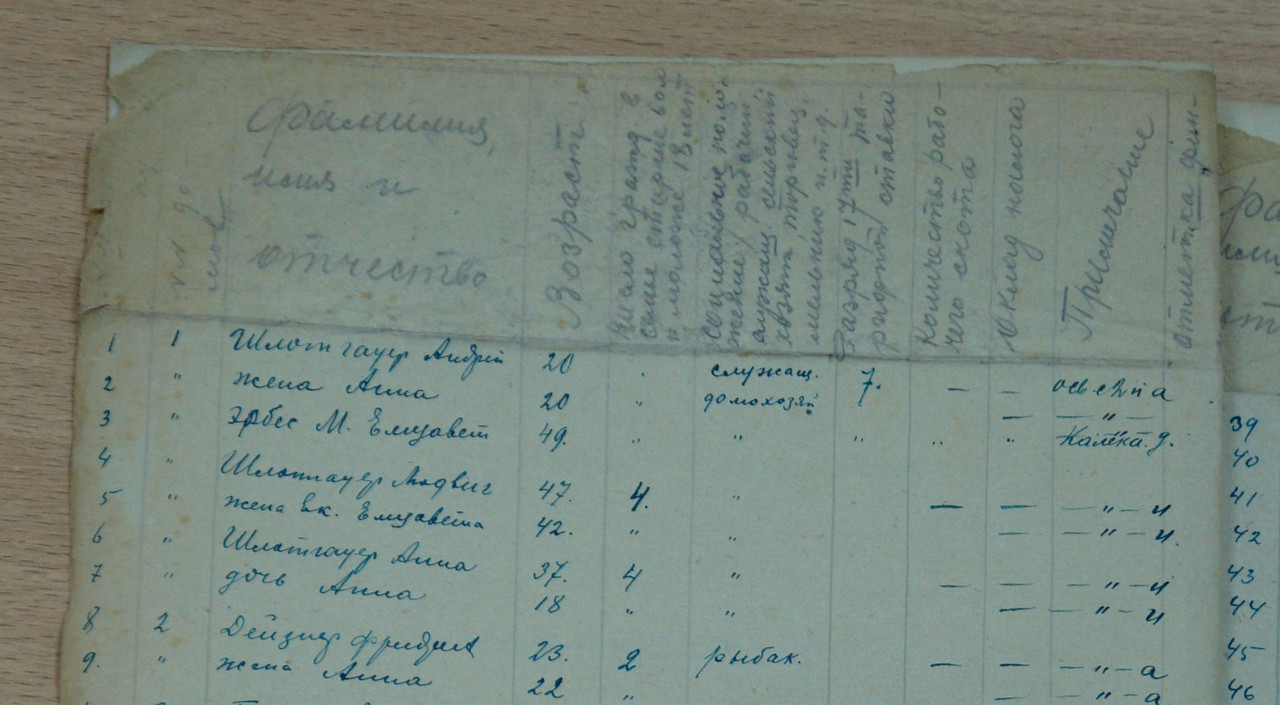 Фамилия,
имя и
отчество
Возраст
Число гражд. в
семье старше 60л
и моложе 18 лет
Социальное поло-
жение / рабочий,
служащ. сельскох
хозять торговец,
мельник и т.д.
Разряд 17ти та-
рифной ставки
Количество рабо-
чего скота
Оклад налога
Примечание
отметка фин-
1 1 Шлотгауер Андрей 20 служащ. 7. — — осв. с 2й а
2 " жена Анна 20 " домохозяй — — " —
3 " Эрбес М. Елизавет 49. " " " " " Калека. д.
4 " Шлотгауер Людвиг 47. 4. " — — — " — и
5 " жена вк. Елизавета 42. " " — — " — и.
6 " Шлотгауер Анна 37. 4 " — — — " — и
7 " дочь Анна 18 " " — — " — и
8 2 Дейзнер Фридрих 23. 2 рыбак. — — — " — а
9. " жена Анна 22 " — — " — а
39
40
41
42
43
44
45
46